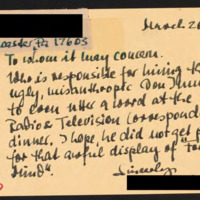 March 2
caster Pa 17603
To whom it may concern.
Who is responsible for hiring th
ugly, misanthropic Don Imu
to even utter a word at the
Radio & Television correspond
dinner. I hope he did not get p
for that awful display of "
mind".
Sincerely,